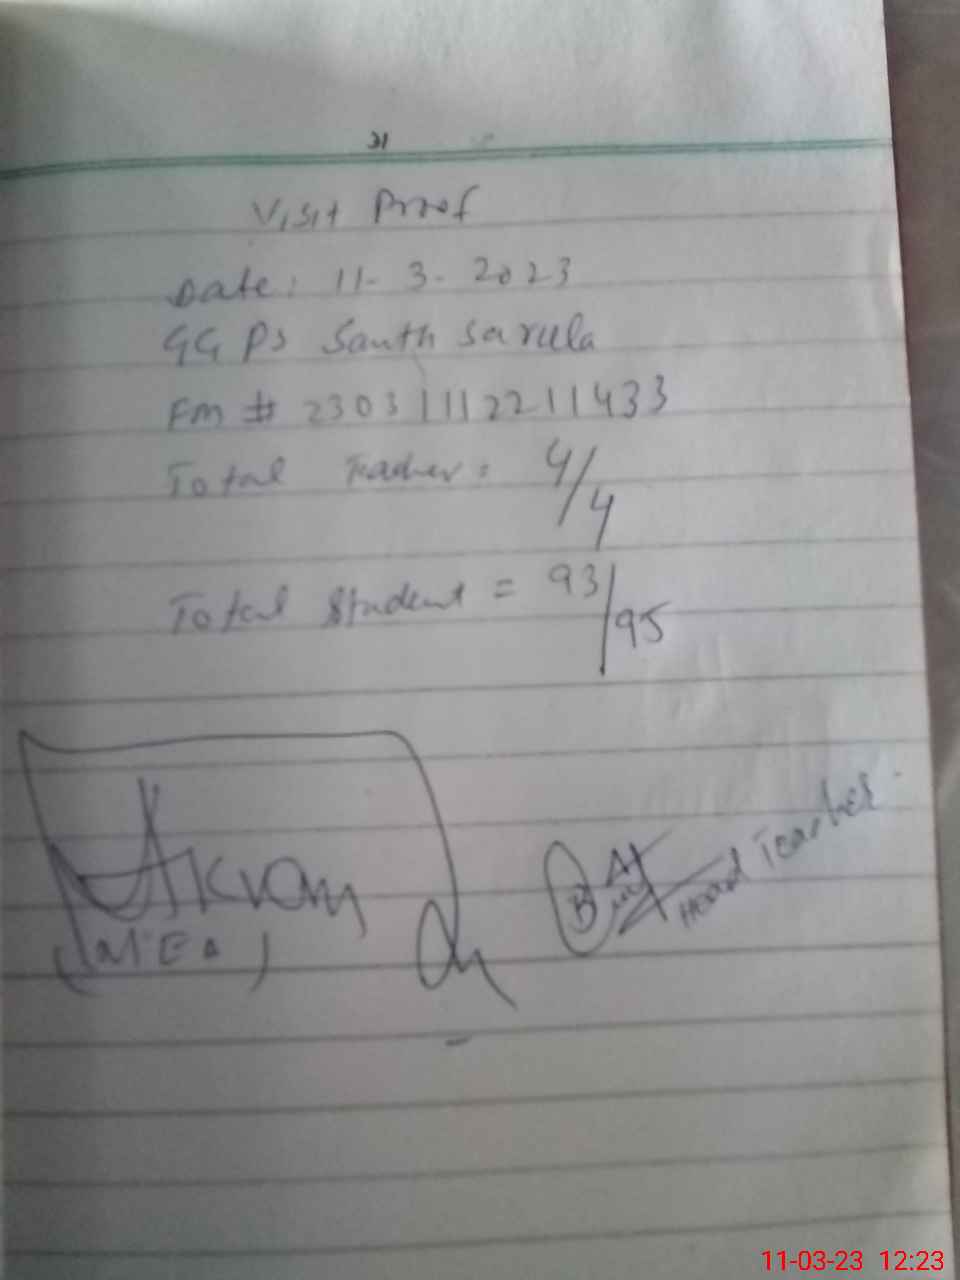 Visit Proof
Date: 11-3-2023
GGPS Santh Sarula
Fm # 230311112211433
Total Teacher = 4/4
Total Student = 93/95
Akram
(MEA)
Head Teacher
11-03-23 12:23